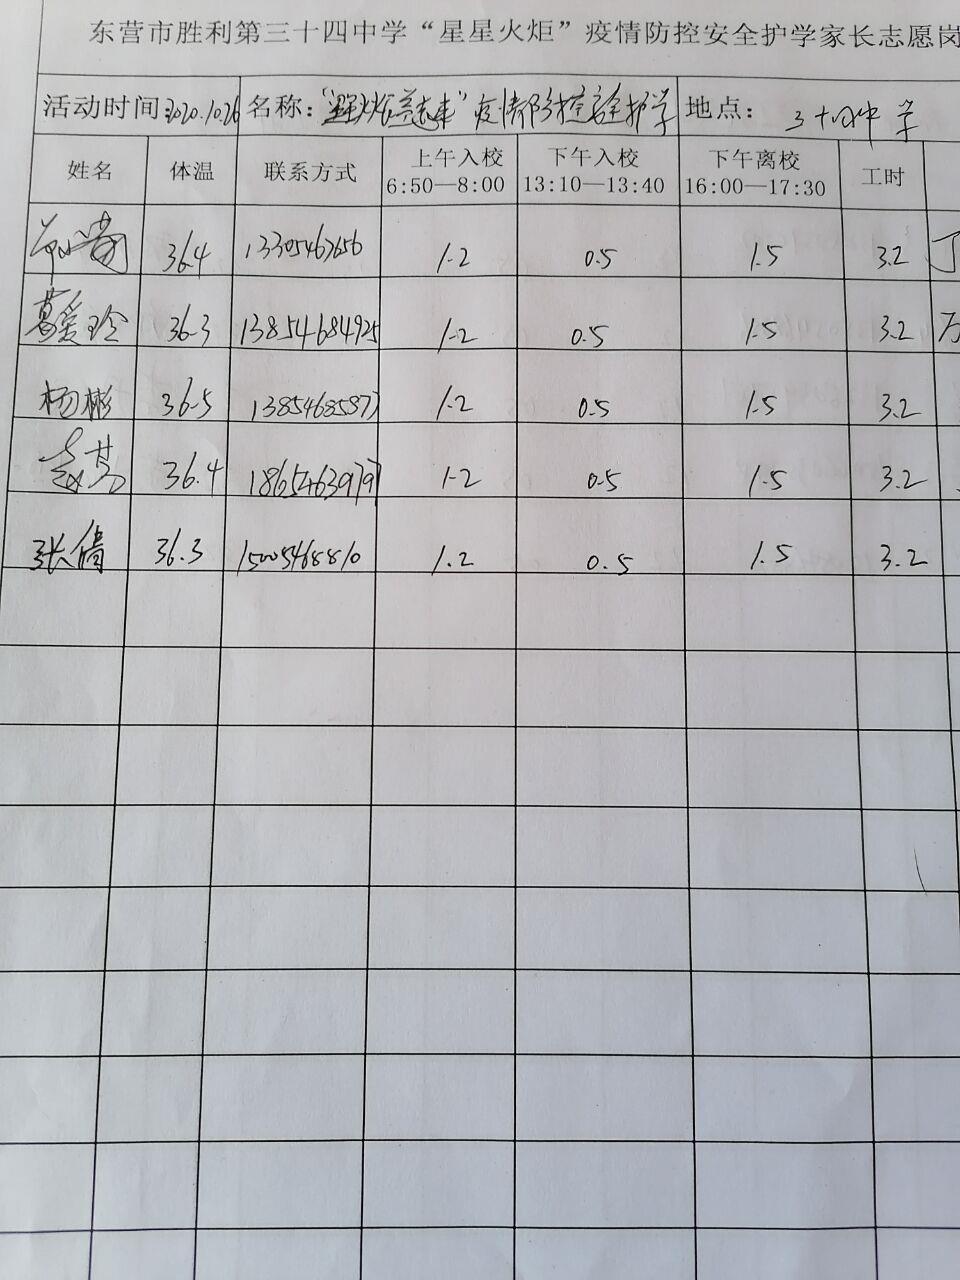 东营市胜利第三十四中学“星星火炬”疫情防控安全护学家长志愿岗
活动时间：2020.10.26 名称： 疫情防控安全护学 地点： 三十四中学
姓名 体温 联系方式 上午入校 6:50—8:00 下午入校 13:10—13:40 下午离校 16:00—17:30 工时
36.4 13305467656 1.2 0.5 1.5 3.2
葛爱玲 36.3 13854684925 1.2 0.5 1.5 3.2
杨彬 36.5 13854685877 1.2 0.5 1.5 3.2
36.4 18654639797 1.2 0.5 1.5 3.2
张倩 36.3 15005468810 1.2 0.5 1.5 3.2